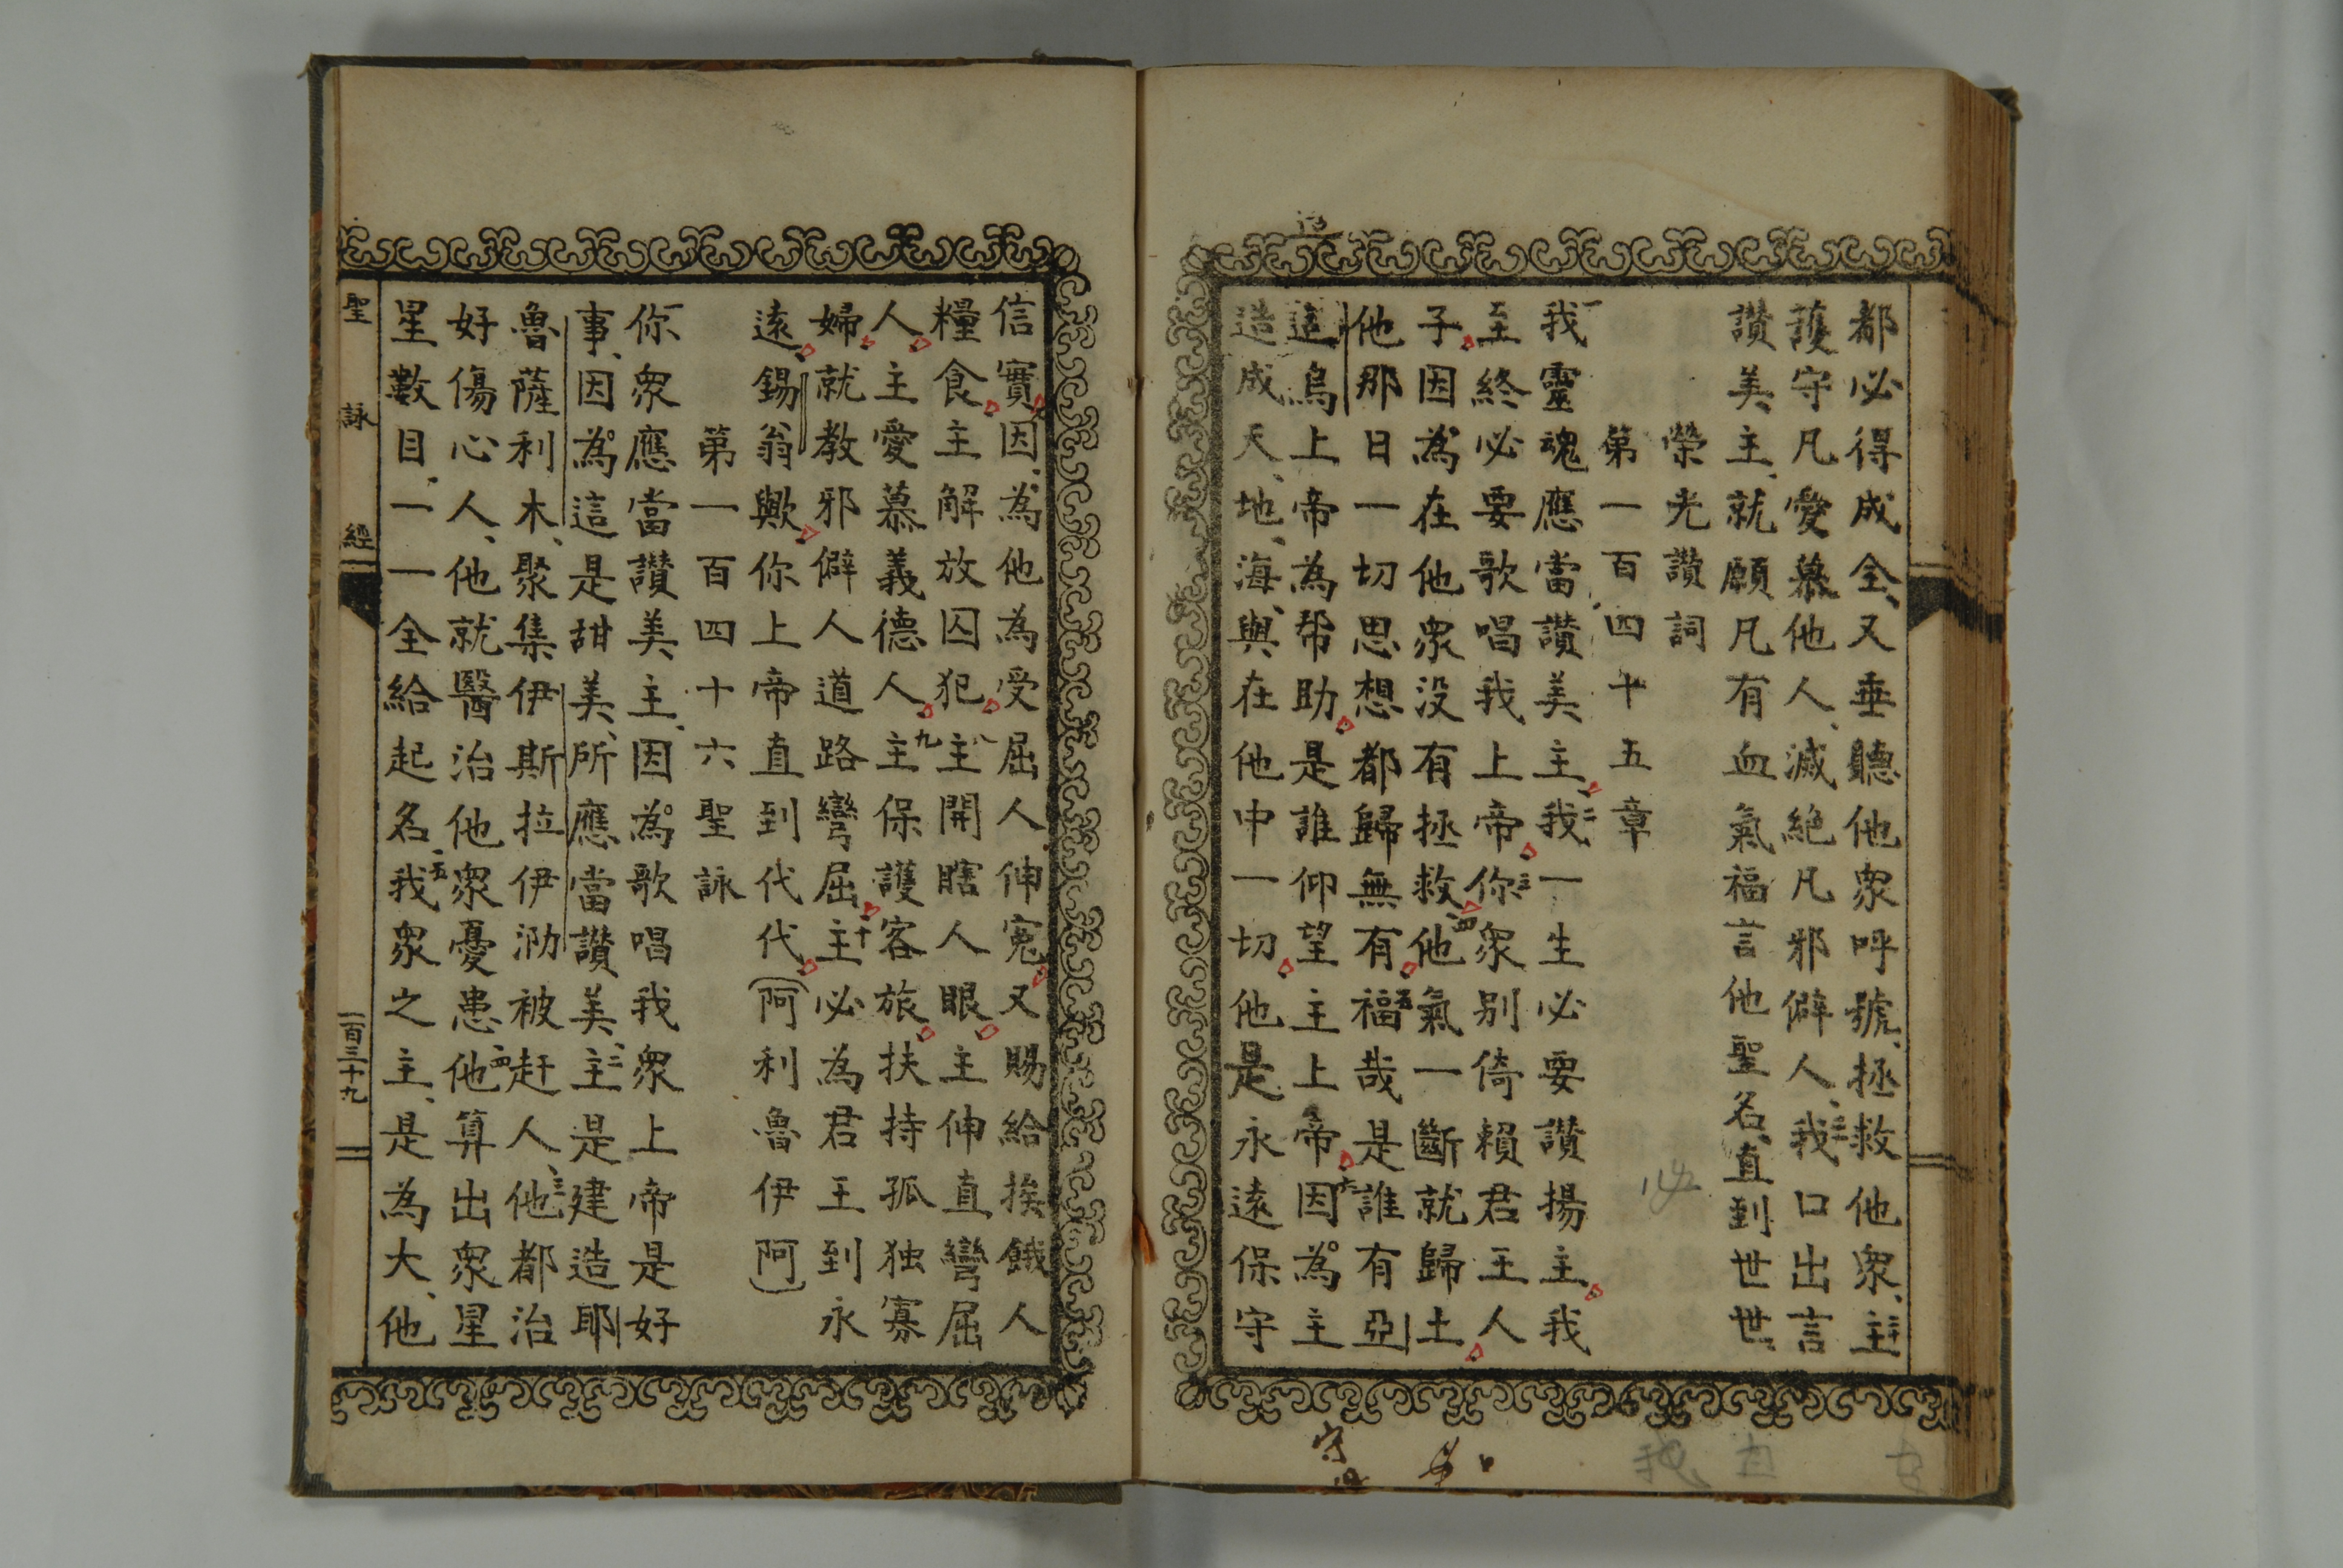 都必得成全、又垂聽他衆呼號、拯救他衆、二十主
護守凡愛慕他人、滅絶凡邪僻人、二十一我口出言
讃美、主、就願凡有血氣福言他聖名、直到世世、
榮光讃詞
第一百四十五章
一我靈魂應當讃美主二我一生必要讃揚主我
至終必要歌唱我上帝三你衆别倚賴君王人
子因為在他衆没有拯救四他氣一斷就歸土
他那日一切思想都歸無有五福哉是誰有亞
适烏上帝為帮助是誰仰望主上帝六因為主
造成天、地、海、與在他中一切他是永遠保守
信實七因、為他為受屈人、伸寃又賜給挨餓人
糧食主解放囚犯八主開瞎人眼主伸直彎屈
人主愛慕義德人九主保護客旅扶持孤独寡
婦就教邪僻人道路彎屈十主必為君王到永
遠錫翁歟你上帝直到代代(阿利魯伊阿)
第一百四十六聖詠
一你衆應當讃美、主、因為歌唱我衆上帝是好
事、因為這是甜美、所應當讃美、二主是建造耶
魯薩利木、聚集伊斯拉伊泐被赶人、三他都治
好傷心人、他就醫治他衆憂患、四他算出衆星
星數目、一一全給起名、五我衆之主、是為大、他
聖詠經
一百三十九
必
守
我